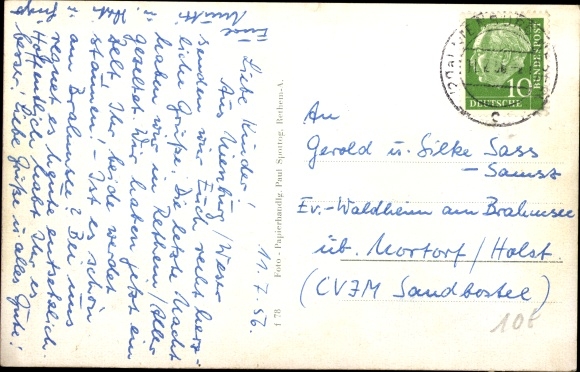 11.7.56.
Liebe Kinder!
Aus Nienburg/Weser
senden wir Euch recht herz-
liche Grüße. Die letzte Nacht
haben wir in Rethem/Aller
gezeltet. Wir haben jetzt ein
Zelt. Ihr beide werdet
staunen! - Ist es schön
am Brahmsee? Bei uns
regnet es heute entsetzlich.
Hoffentlich habt Ihr es
besser! Liebe Grüße u. alles Gute!
Eure
Mutti
u.
f 78 Foto - Papierhandlg. Paul Spontog, Rethem-A.
10
DEUTSCHE
BUNDESPOST
c
An
Gerold u. Silke Sass
- Samst
Ev.-Waldheim am Brahmsee
üb. Nortorf/Holst.
(CVJM Sandbostel)
108